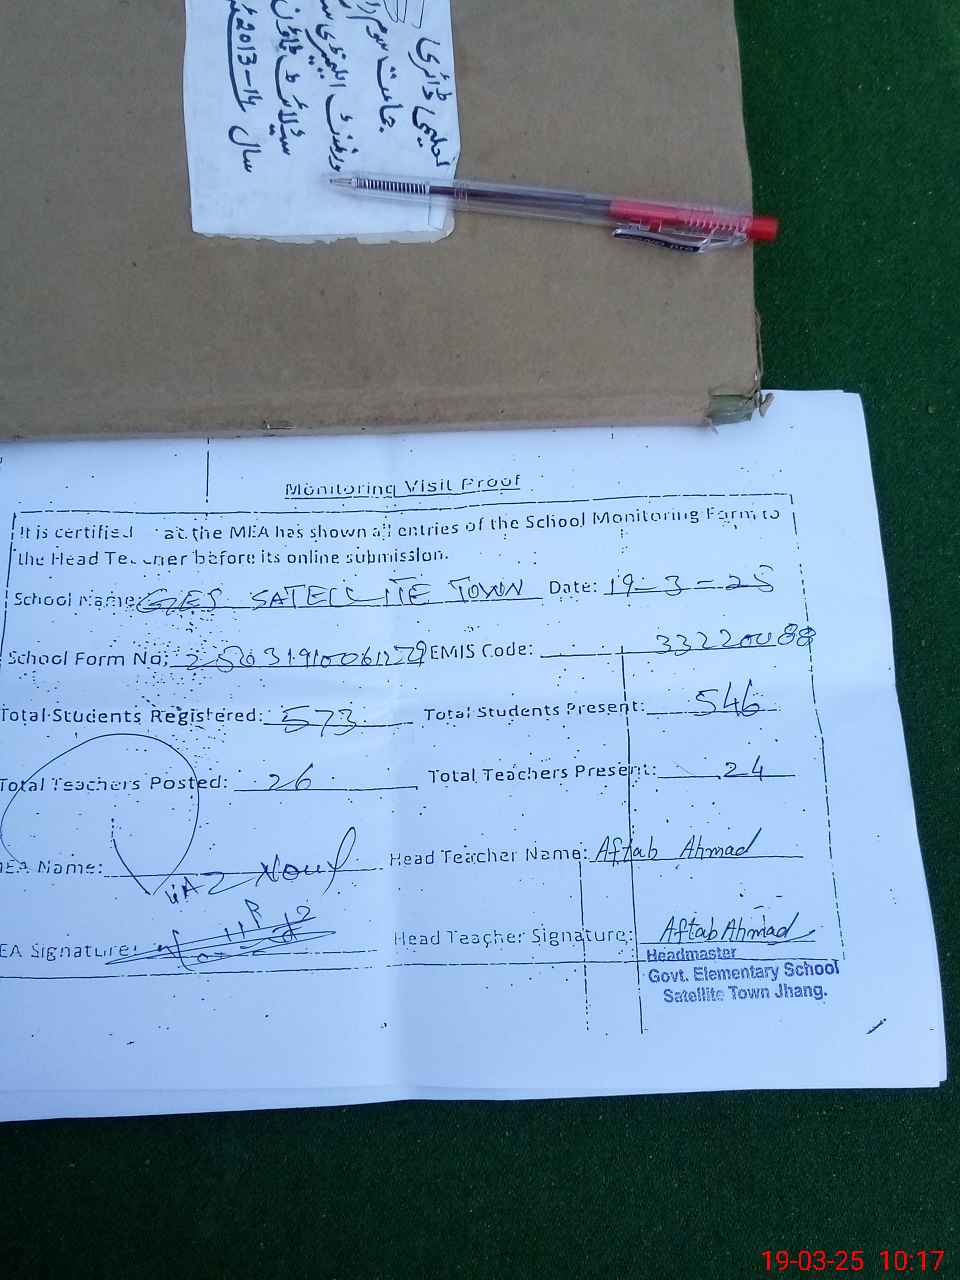 تعلیمی ڈائری
جماعت سوم
سیٹلائٹ ٹاؤن
سال 2013-14
Monitoring Visit Proof
It is certified at the MEA has shown all entries of the School Monitoring Form to
the Head Teacher before its online submission.
School Name: GES SATELLITE TOWN Date: 19-3-25
School Form No: EMIS Code: 33220088
Total Students Registered: 573 Total Students Present: 546
Total Teachers Posted: 26 Total Teachers Present: 24
MEA Name: Head Teacher Name: Aftab Ahmad
EA Signature: Head Teacher Signature: Aftab Ahmad
Headmaster
Govt. Elementary School
Satellite Town Jhang.
19-03-25 10:17